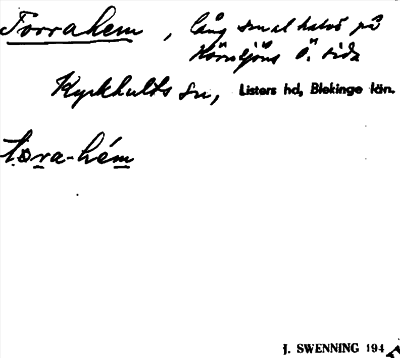 Torrahem, lång smal halvö på
Hörnsjöns Ö. sida
Kyrkhults sn, Listers hd, Blekinge län.
tora-hém
J. SWENNING 194